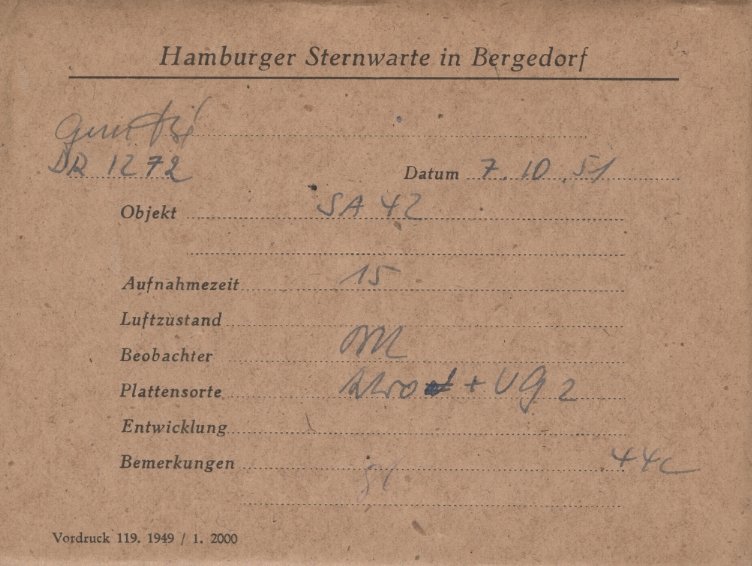 Hamburger Sternwarte in Bergedorf
DR 1272 Datum 7.10.51
Objekt SA 42
Aufnahmezeit 15
Luftzustand
Beobachter
Plattensorte + UG 2
Entwicklung
Bemerkungen
Vordruck 119. 1949 / 1. 2000